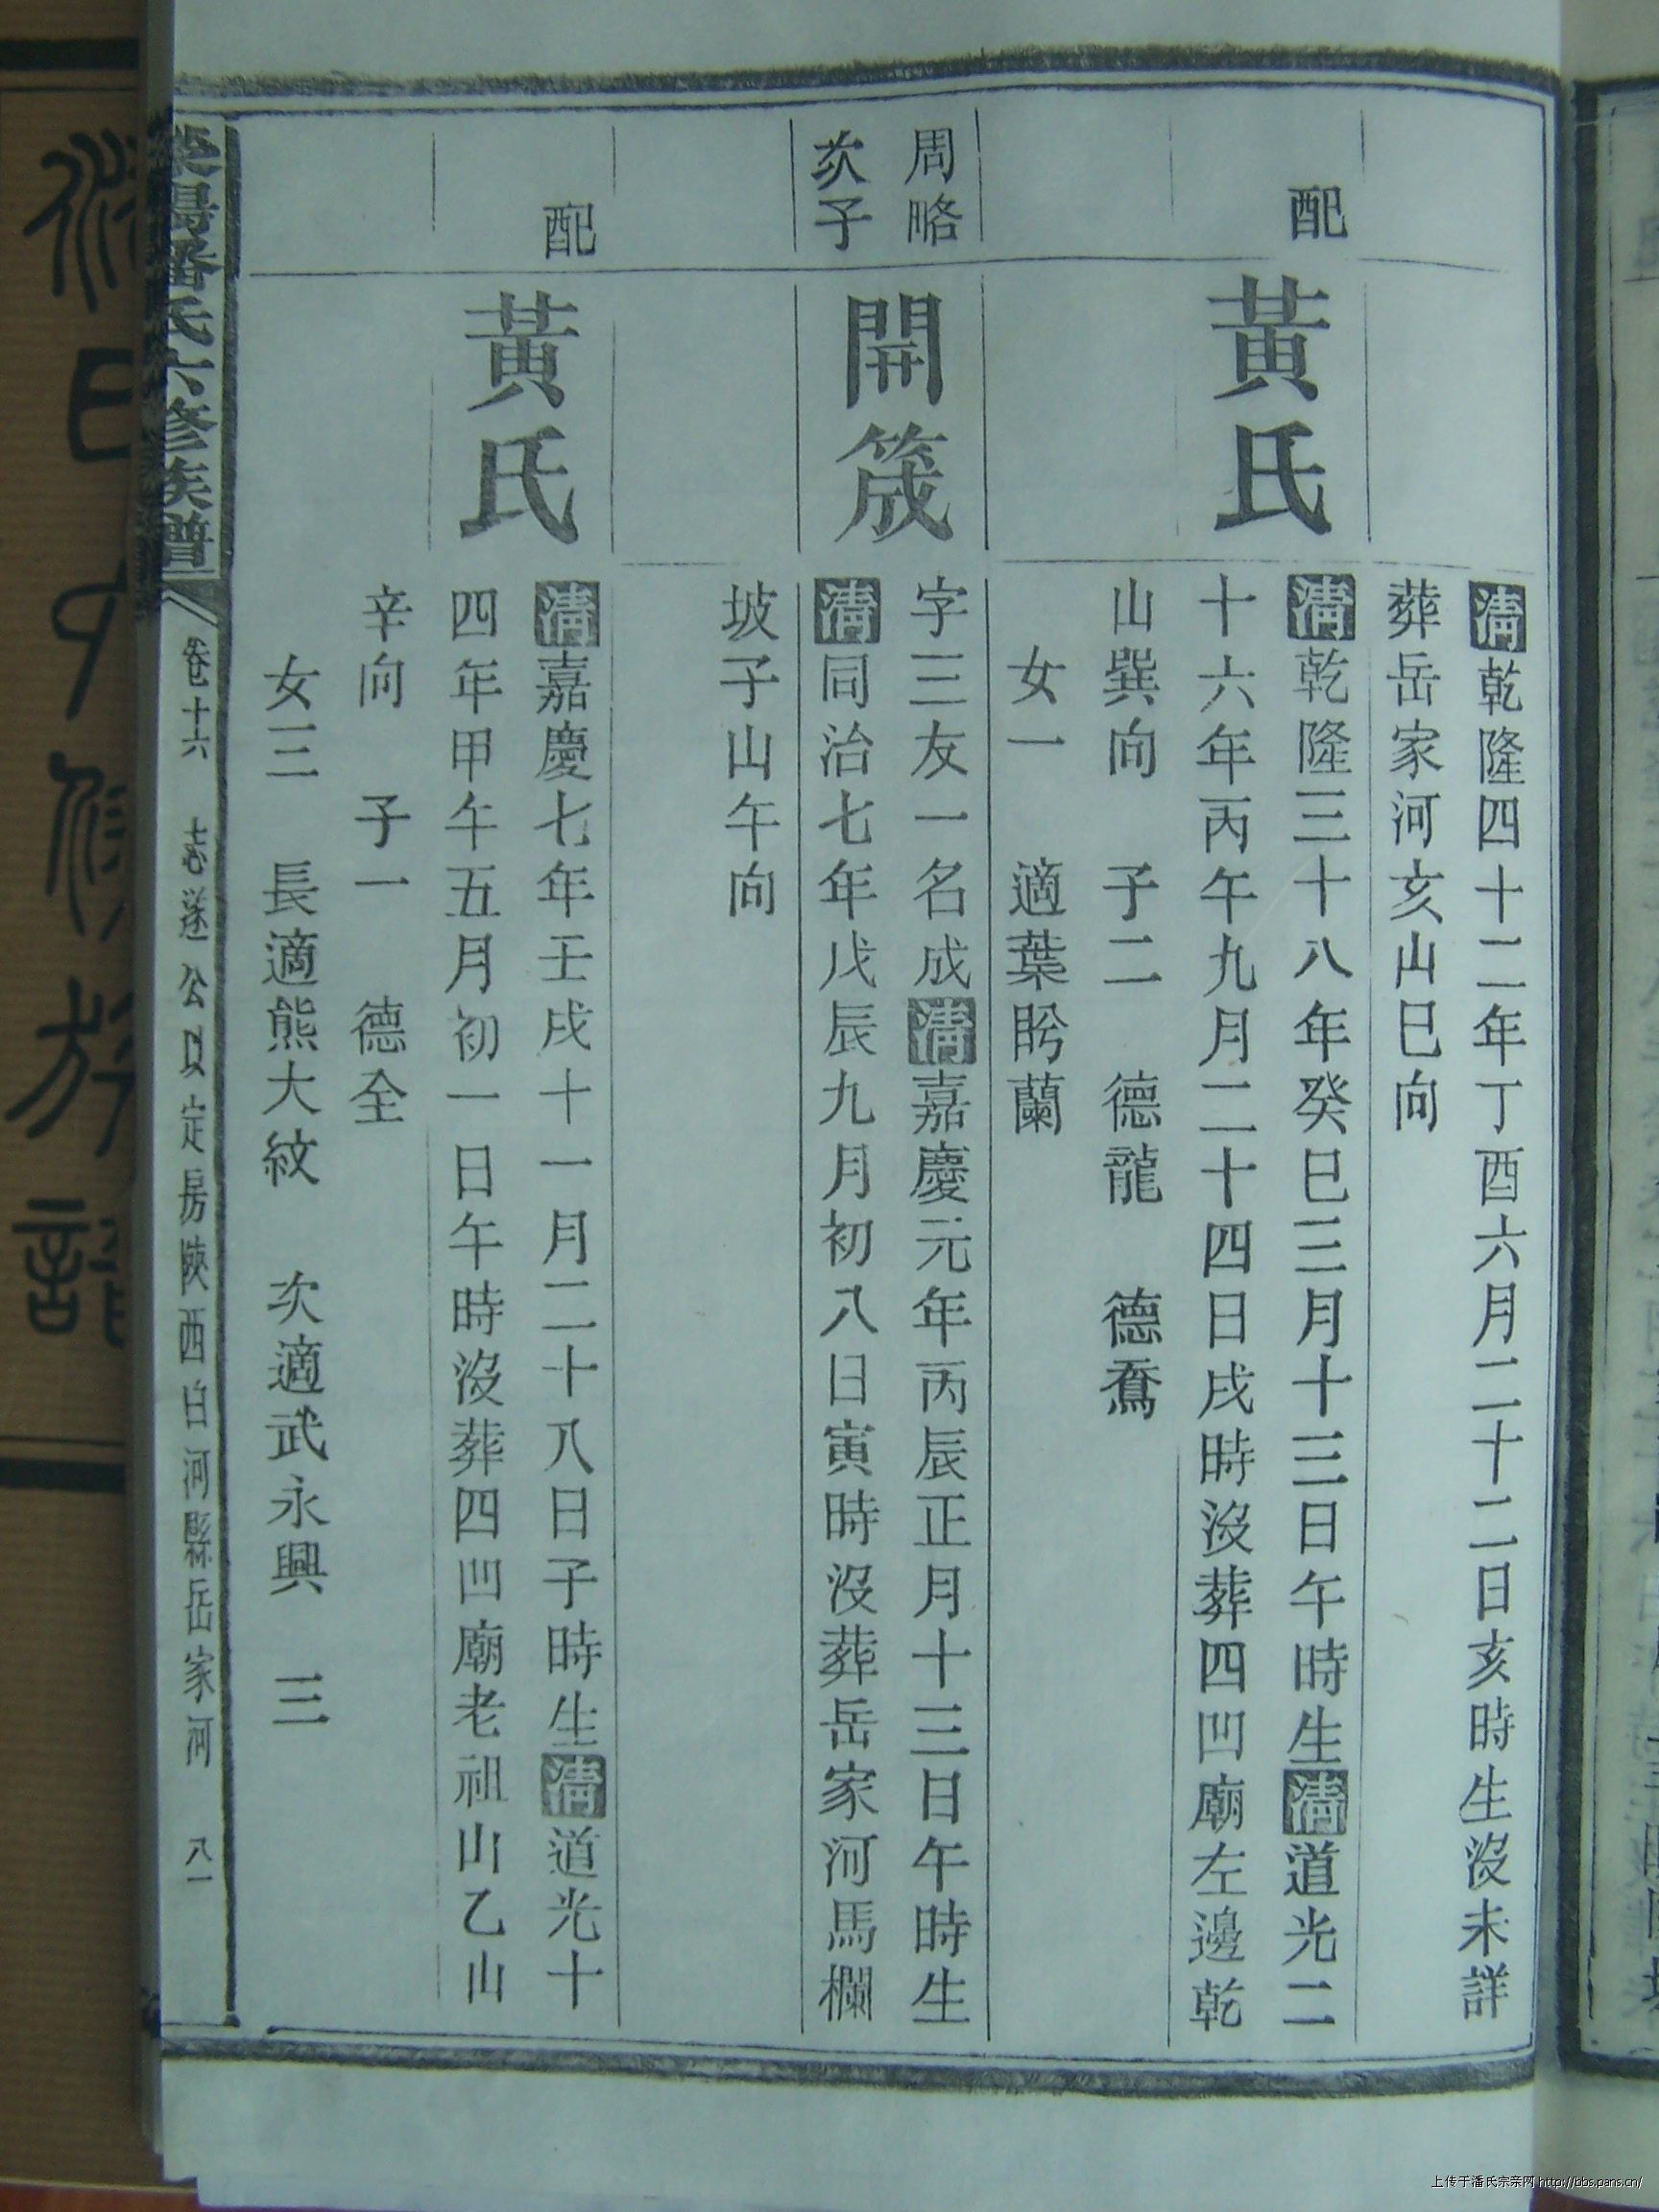 清乾隆四十二年丁酉六月二十二日亥時生沒未詳
葬岳家河亥山巳向
配
黃氏
清乾隆三十八年癸巳三月十三日午時生清道光二
十六年丙午九月二十四日戌時沒葬四凹廟左邊乾
山巽向 子二 德龍 德鴌
女一 適葉盻蘭
周略
次子
開箴
字三友一名成清嘉慶元年丙辰正月十三日午時生
清同治七年戊辰九月初八日寅時沒葬岳家河馬欄
坡子山午向
配
黃氏
清嘉慶七年壬戌十一月二十八日子時生清道光十
四年甲午五月初一日午時沒葬四凹廟老祖山乙山
辛向 子一 德全
女三 長適熊大紋 次適武永興 三
滎陽潘氏六修族譜
卷十六 志遂公以定房陝西白河縣岳家河 八一
族譜
上传于潘氏宗亲网 http://bbs.pans.cn/